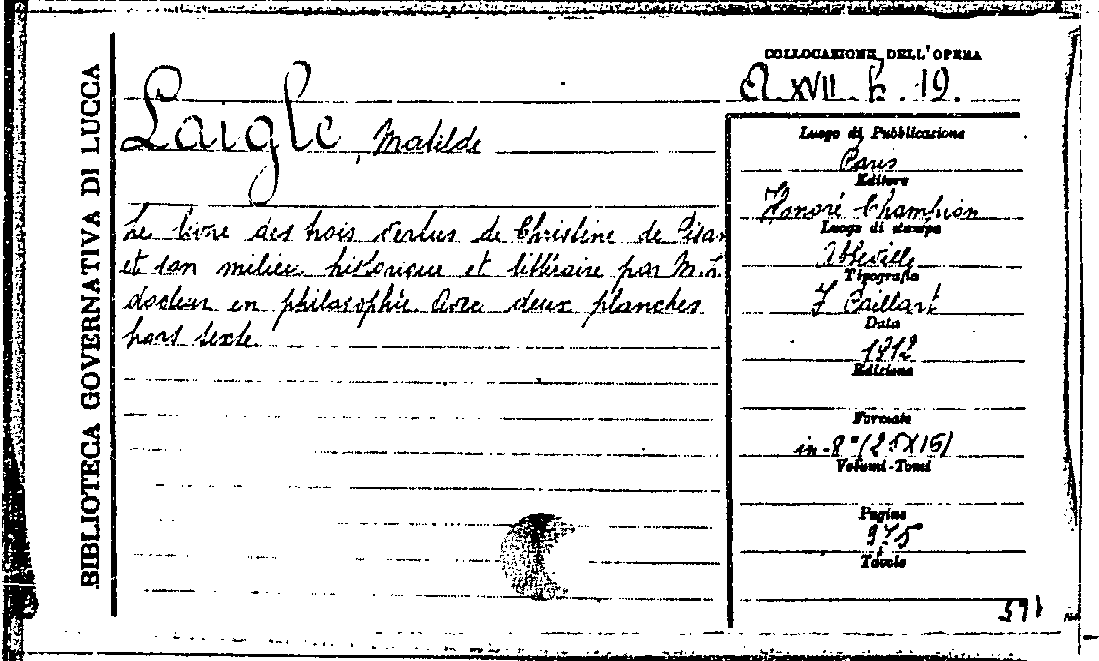 BIBLIOTECA GOVERNATIVA DI LUCCA
COLLOCAZIONE DELL'OPERA
A. XVII. b. 19.
Laigle, Matilde
Le livre des trois vertus de Christine de Pisan
et son milieu historique et littéraire par M. L.
docteur en philosophie. Avec deux planches
hors texte.
Luogo di Pubblicazione
Paris
Editore
Honoré Champion
Luogo di stampa
Abbeville
Tipografia
F. Paillart
Data
1912
Edizione
Formato
in-8° (25X15)
Volumi-Tomi
Pagine
375
Tavole